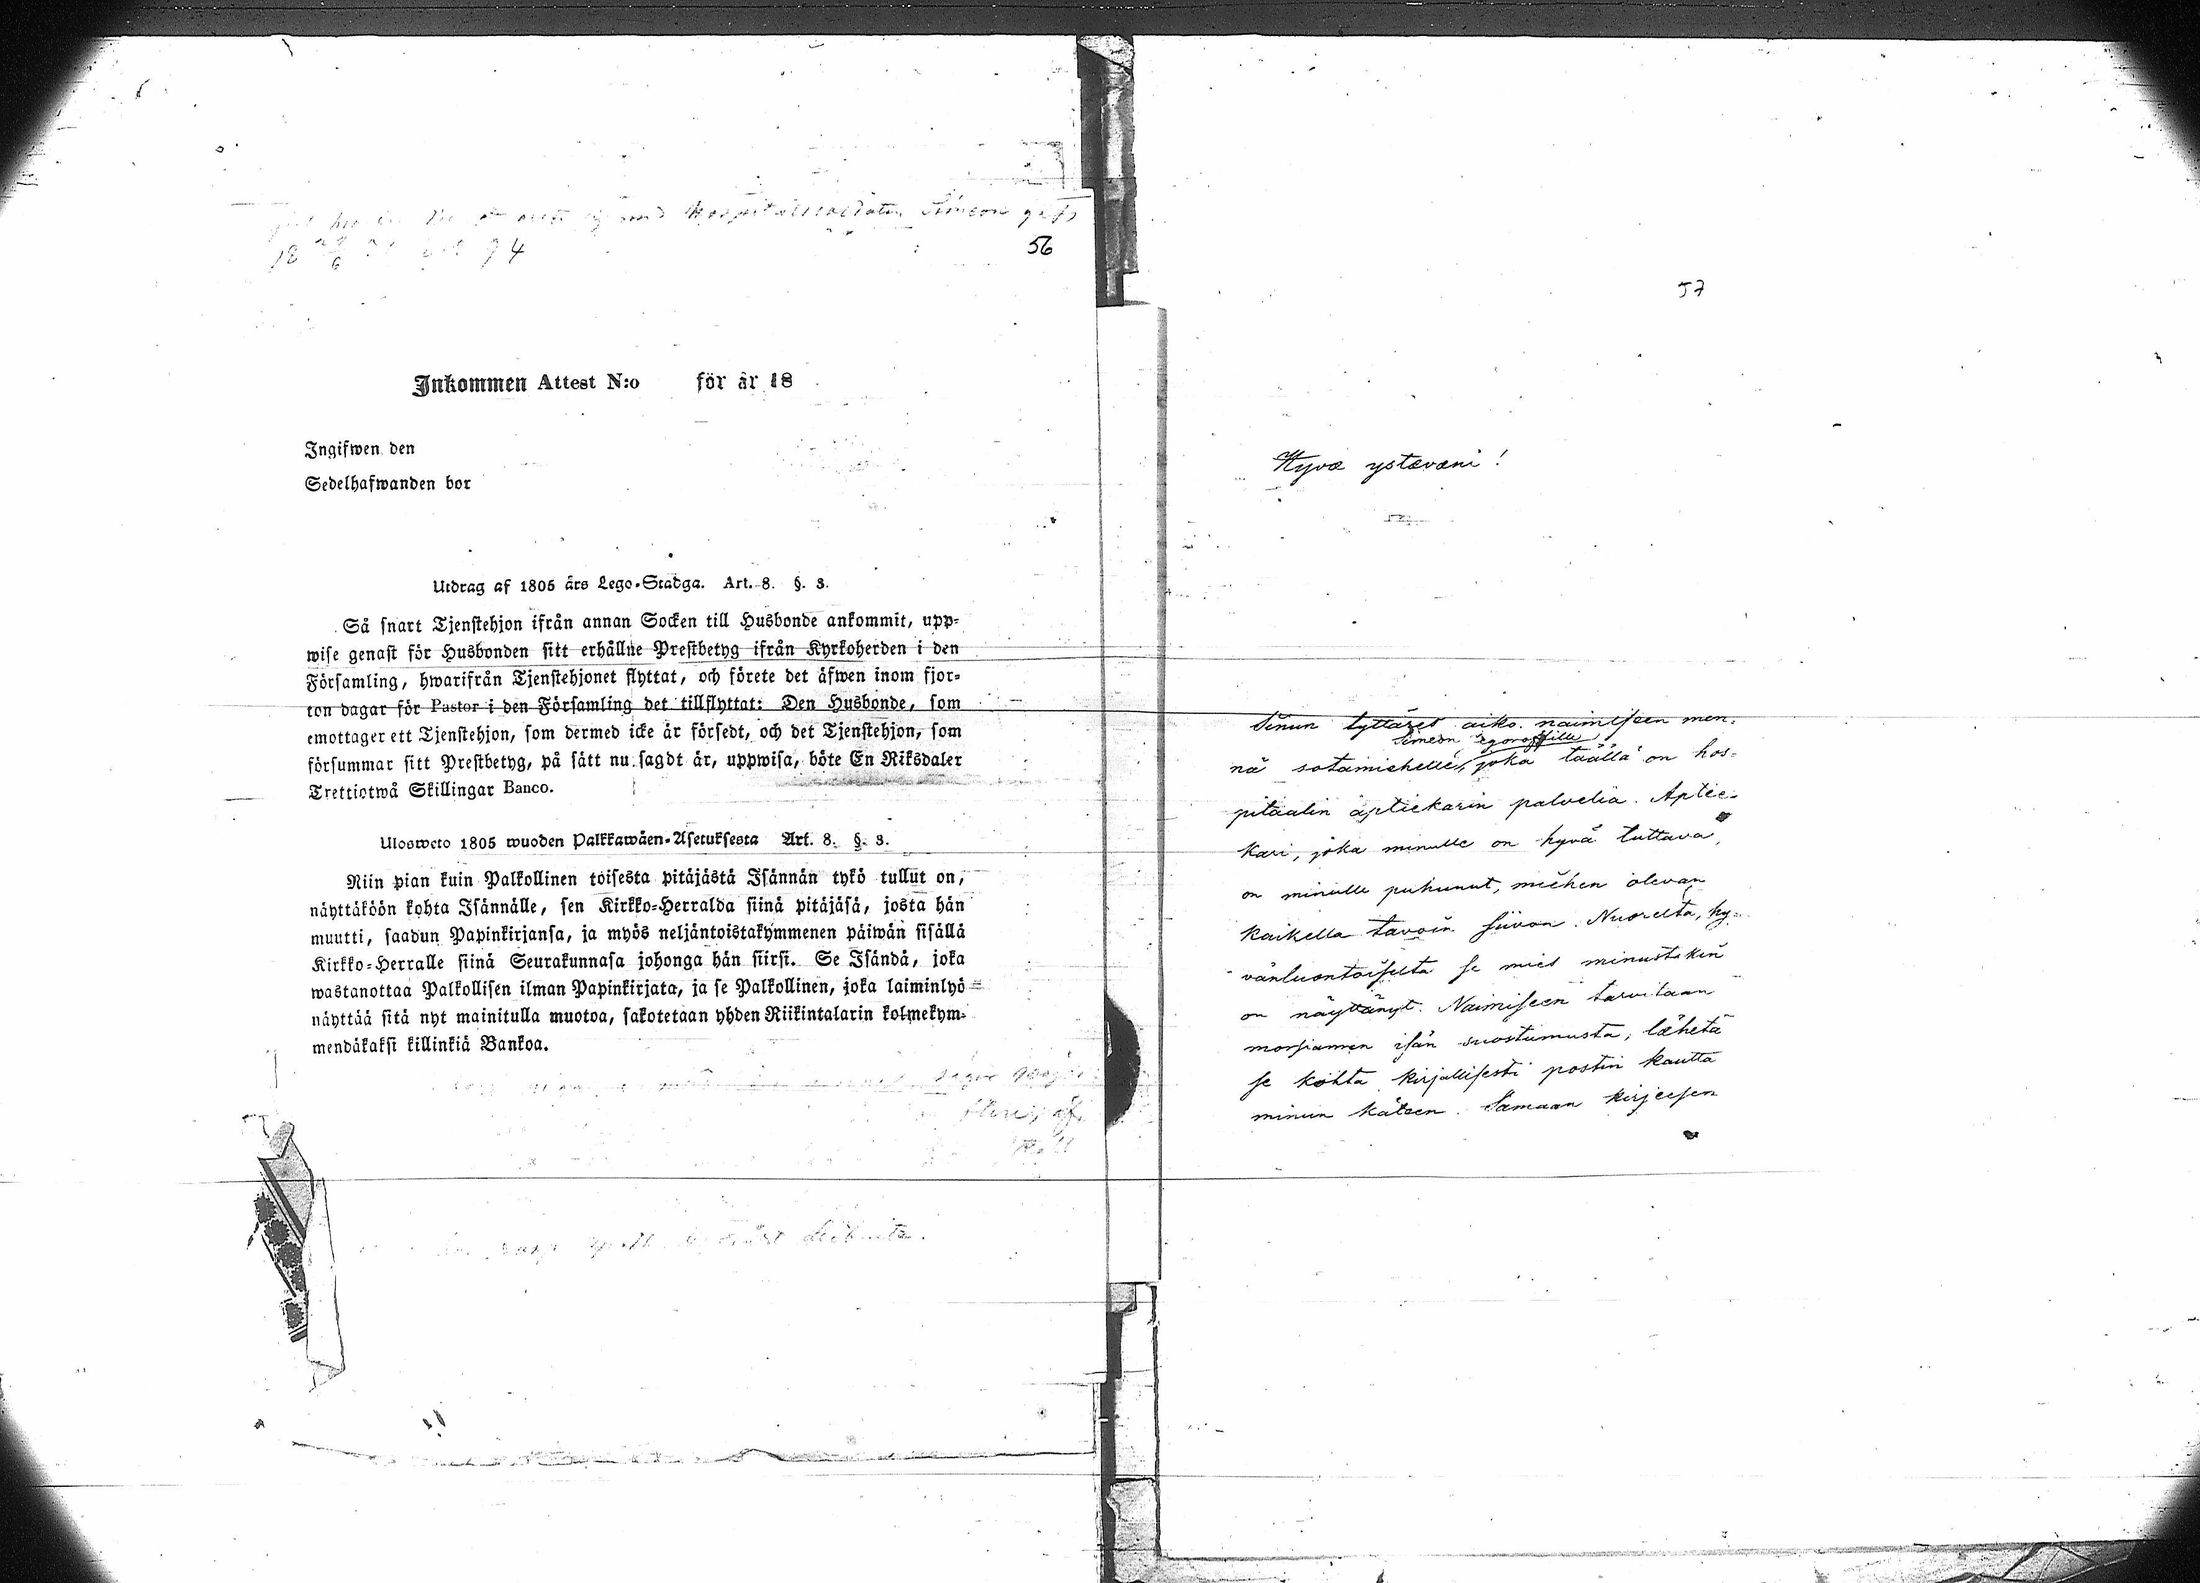 Hospitalssoldaten Simeon
94
56
Inkommen Attest N:o för år 18
Ingifwen den
Sedelhafwanden bor
Utdrag af 1805 års Lego-Stadga. Art. 8. §. 3.
Så snart Tjenstehjon ifrån annan Socken till Husbonde ankommit, upp-
wise genast för Husbonden sitt erhållne Prestbetyg ifrån Kyrkoherden i den
Församling, hwarifrån Tjenstehjonet flyttat, och förete det äfwen inom fjor-
ton dagar för Pastor i den Församling det tillflyttat: Den Husbonde, som
emottager ett Tjenstehjon, som dermed icke är försedt, och det Tjenstehjon, som
försummar sitt Prestbetyg, på sätt nu sagdt är, uppwisa, böte En Riksdaler
Trettiotwå Skillingar Banco.
Ulosweto 1805 wuoden Palkkawäen-Asetuksesta Art. 8. §. 3.
Niin pian kuin Palkollinen toisesta pitäjästä Isännän tykö tullut on,
näyttäköön kohta Isännälle, sen Kirkko-Herralda siinä pitäjäsä, josta hän
muutti, saadun Papinkirjansa, ja myös neljäntoistakymmenen päiwän sisällä
Kirkko-Herralle siinä Seurakunnasa johonga hän siirsi. Se Isändä, joka
wastanottaa Palkollisen ilman Papinkirjata, ja se Palkollinen, joka laiminlyö
näyttää sitä nyt mainitulla muotoa, sakotetaan yhden Riikintalarin kolmekym-
mendäkaksi killinkiä Bankoa.
57
Hyvæ ystævæni!
Sinun tyttäres aiko naimiseen men-
Simeon Egoroffille,
nä sotamiehelle, joka täällä on hos-
pitaalin aptiekarin palvelia. Aptie-
kari, joka minulle on hyvä tuttava,
on minulle puhunut, miehen olevan
kaikella tavoin siivon. Nuorelta, hy-
vänluontoiselta se mies minustakin
on näyttänyt. Naimiseen tarvitaan
morsiamen isän suostumusta; læhetä
se kohta kirjallisesti postin kautta
minun käteen. Samaan kirjeesen